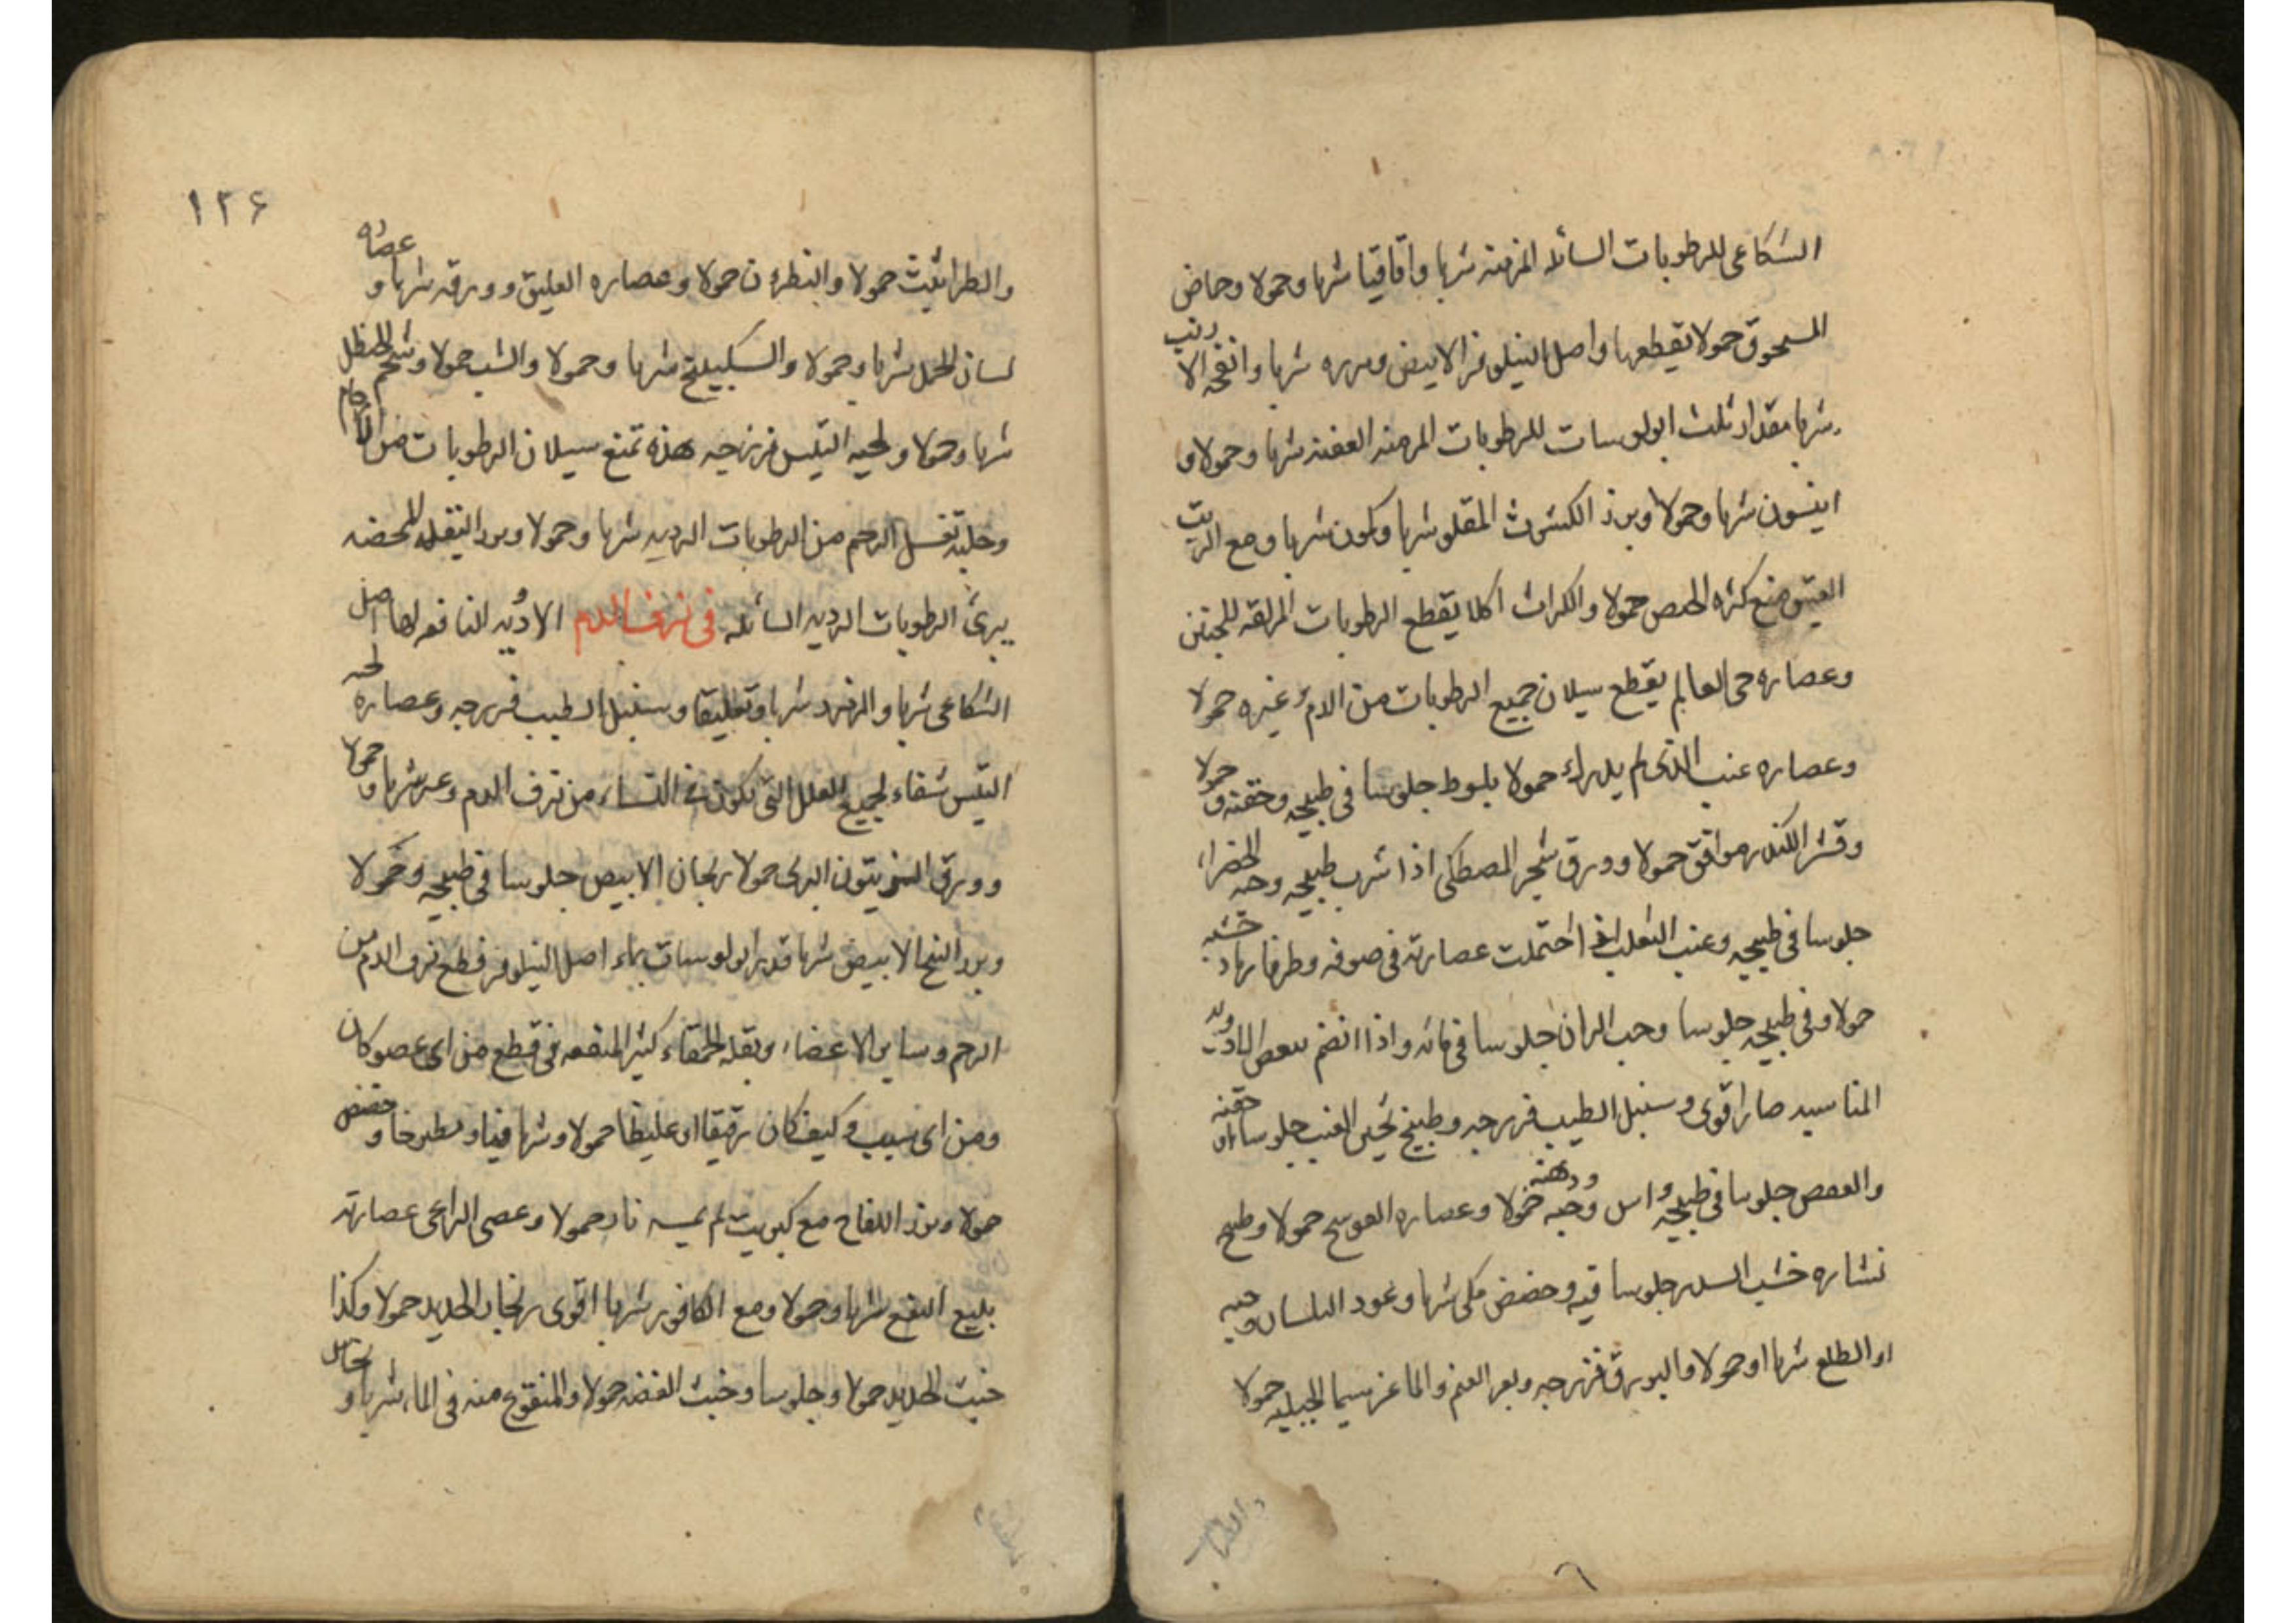 الشكاعى للرطوبات السائله المزمنه شربا واقاقيا شربا وحمولا وحماض
المسحوق حمولا يقطعها واصل النيلوفر الابيض وبزره شربا وانفحه الارنب
شربا مقدار ثلث ابولوسات للرطوبات المزمنه العفنه شربا وحمولا و
انيسون شربا وحمولا وبزر الكشوث المقلو شربا وكمون شربا ومع الزيت
العتيق منع كثره الحمص حمولا والكراث اكلا يقطع الرطوبات المزلقه للجنين
وعصاره حى العالم يقطع سيلان جميع الرطوبات من الدم وغيره حمولا
وعصاره عنب الذى لم يدرك حمولا بلوط جلوسا فى طبيخه وحقنه وحمولا
وقشر الكندر موافق حمولا وورق شجر المصطكى اذا شرب طبيخه وحبه الخضراء
جلوسا فى طبيخه وعنب الثعلب اذا احتملت عصارته فى صوفه وطرفا رماد خشبه
حمولا وفى طبيخه جلوسا وحب الرمان جلوسا فى مائه واذا انضم ببعض الادويه
المناسبه صار اقوى وسنبل الطيب فرزجه وطبيخ نحير العنب جلوسا او حقنه
والعفص جلوسا فى طبيخه واس وحبه ودهنه حمولا وعصاره العوسج حمولا وطبيخ
نشاره خشب السدر جلوسا فيه وحضض مكى شربا وعود البلسان وحبه
او الطلع شربا او حمولا والبورق فرزجه وبعر الغنم والماعز سيما الجبليه حمولا
١٢۶
والطراثيث حمولا والنطرون حمولا وعصاره العليق وورقه شربا وعصاره
لسان الحمل شربا وحمولا والسكبينج شربا وحمولا والشب حمولا وشحم الحنظل
شربا وحمولا ولحيه التيس فرزجه هذه تمنع سيلان الرطوبات من الارحام
وحلبه تغسل الرحم من الرطوبات الرديه شربا وحمولا وبزر البقله الحمضه
يبرئ الرطوبات الرديه السائله فى نزف الدم الادويه النافعه لها اصل
الشكاعى شربا والزمرد شربا وتعليقا وسنبل الطيب فرزجه وعصاره لحيه
التيس شفاء لجميع العلل التى تكون فى النساء من نزف الدم وغيره شربا وحمولا
وورق الزيتون البرى حمولا ريحان الابيض جلوسا فى طبيخه وحمولا
وبزر البنج الابيض شربا قدر ابولوسات بماء اصل النيلوفر قطع نزف الدم من
الرحم وسائر الاعضاء وبقله الحمقاء كثير المنفعه فى قطع من اى عضو كان
ومن اى سبب وكيف كان رقيقا او غليظا حمولا وشربا فيا ومطبوخا وحضض
حمولا وبزر اللفاح مع كبريت لم يمسه نار حمولا وعصى الراعى عصارته
بليع النفع شربا وحمولا ومع الكافور شربا اقوى زنجار الحديد حمولا وكذا
خبث الحديد حمولا وجلوسا وخبث الفضه حمولا والمنقوع منه فى الماء شربا و